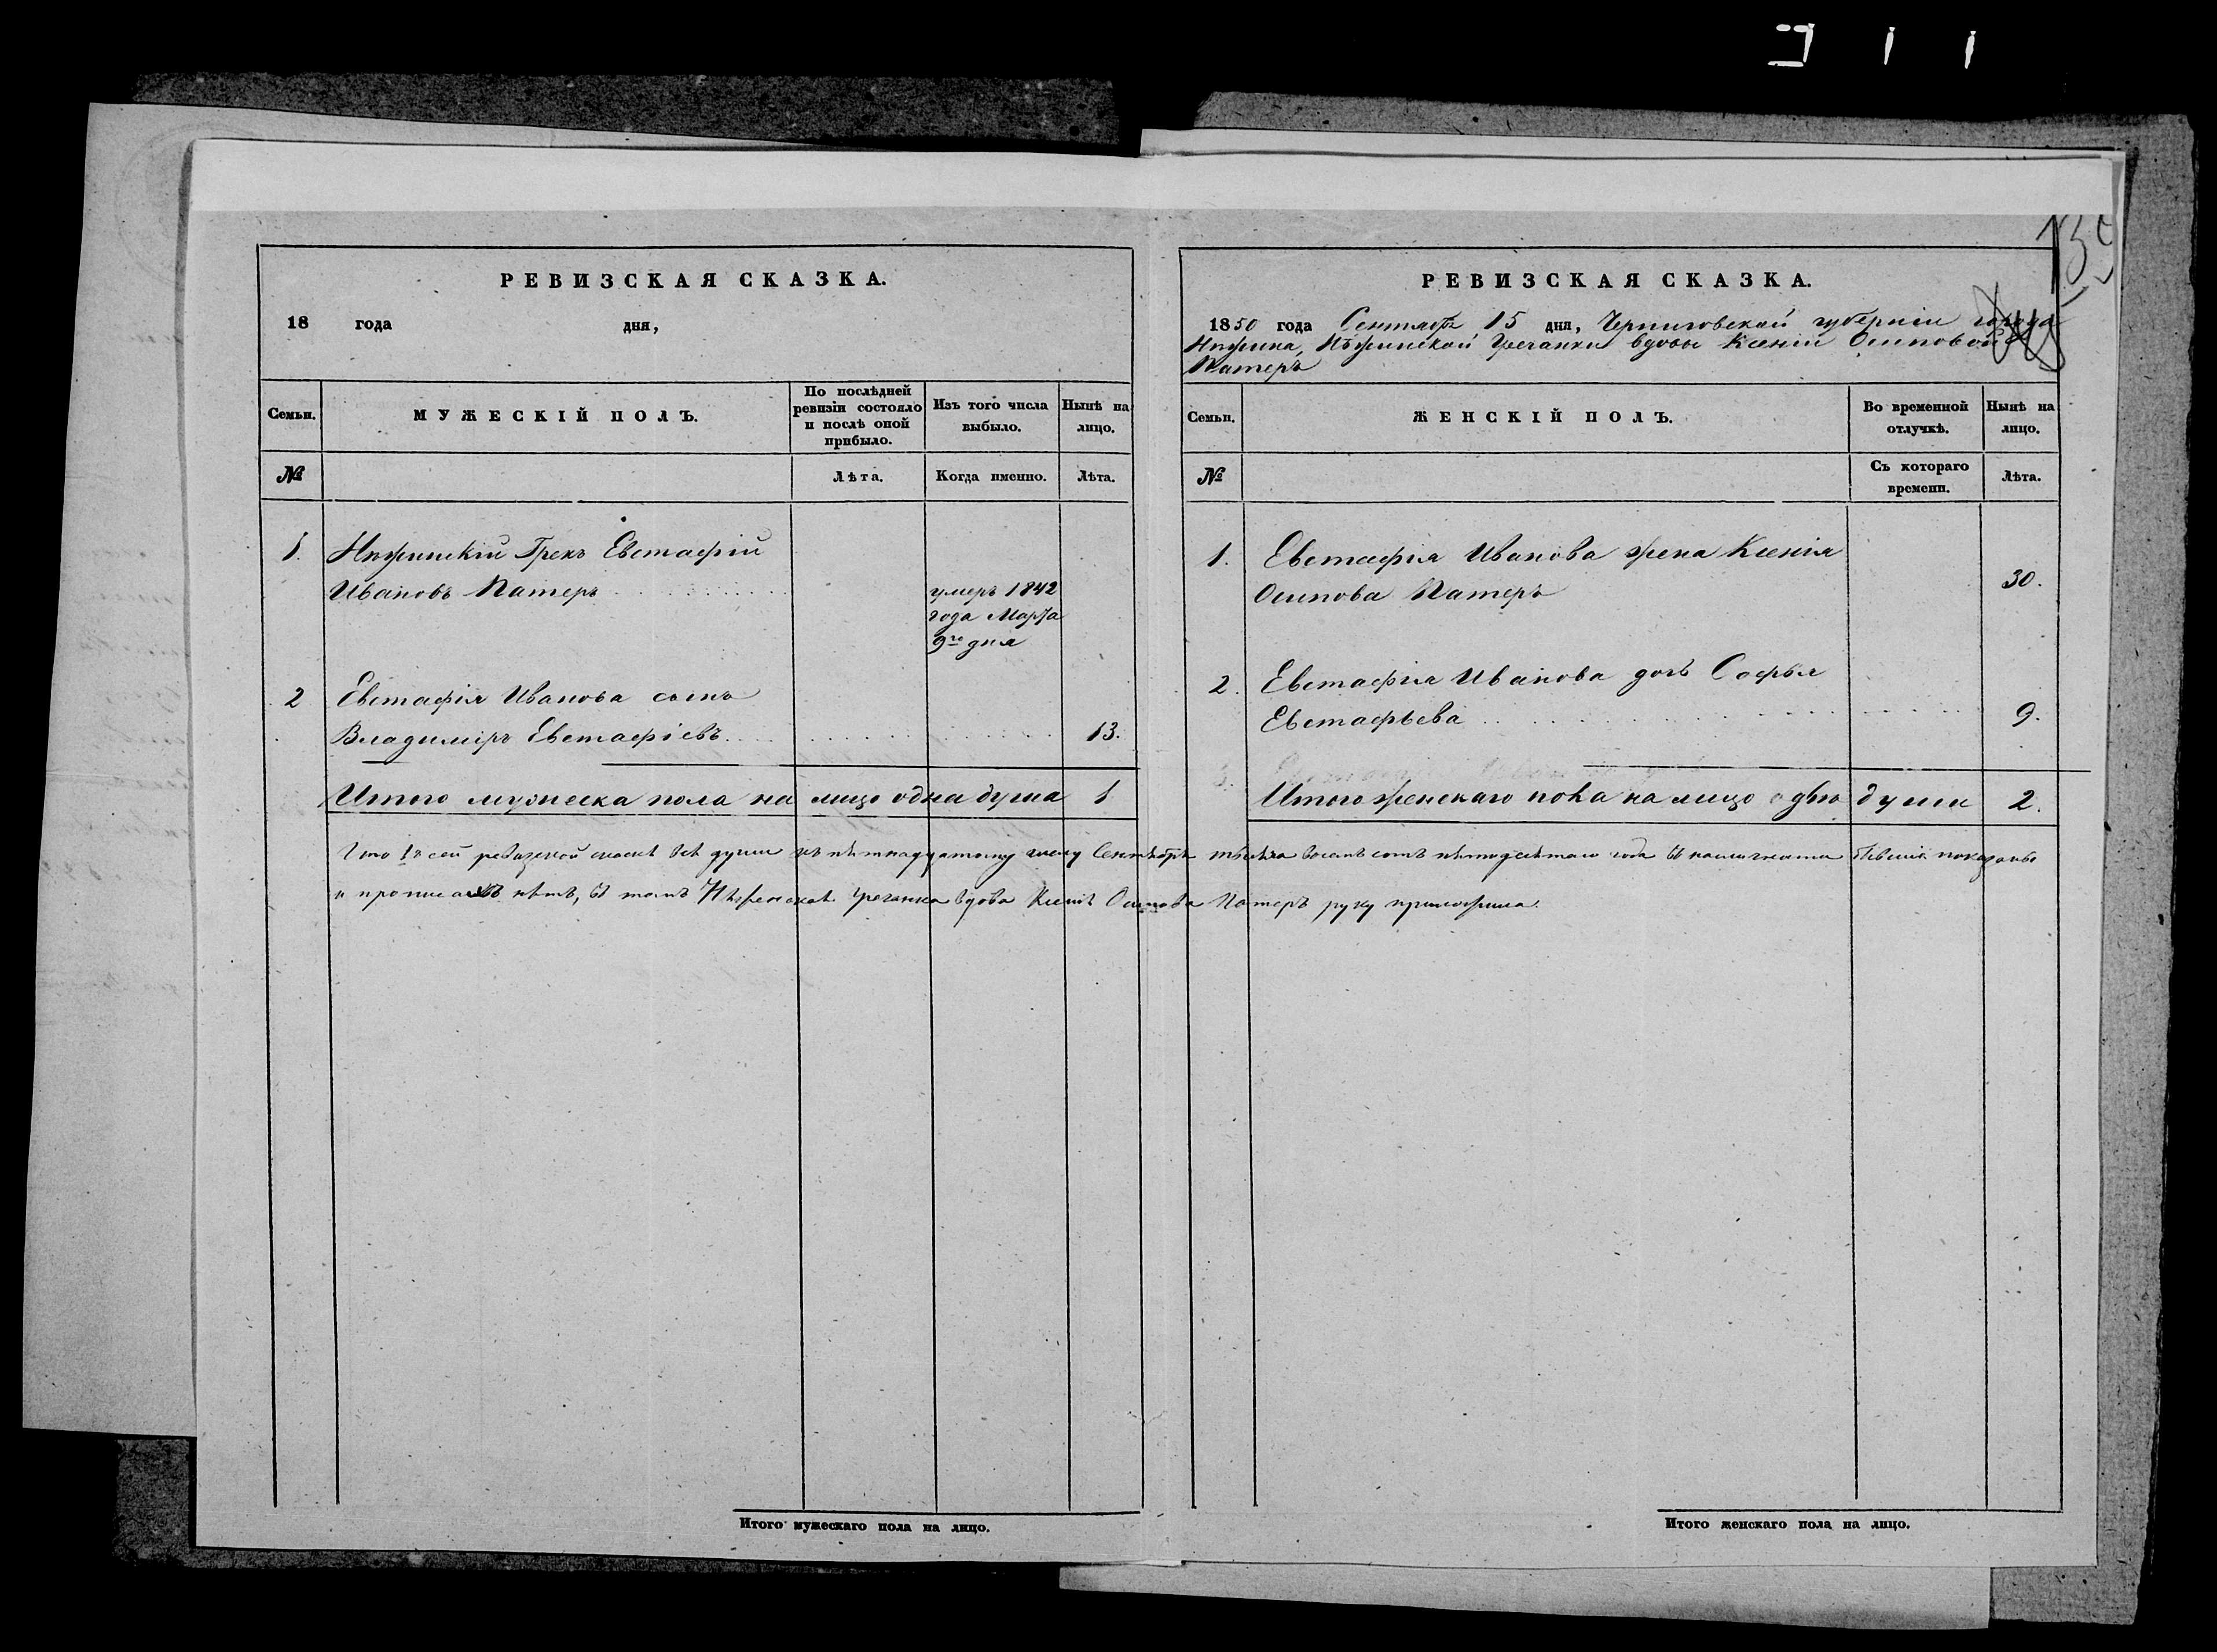 139
РЕВИЗСКАЯ СКАЗКА.
18 года дня,
Семьи.
МУЖЕСКІЙ ПОЛЪ.
По послѣдней ревизіи состояло и послѣ оной прибыло.
Изъ того числа выбыло.
Нынѣ на лицо.
№
Лѣта.
Когда именно.
Лѣта.
1. Нѣжинскій Грекъ Евстафій
Ивановъ Патеръ
умеръ 1842
года Марта
9го дня
2 Евстафія Иванова сынъ
Владиміръ Евстафіевъ 13.
Итого мужеска пола на лицо одна душа 1
РЕВИЗСКАЯ СКАЗКА.
1850 года Сентября 15 дня, Черниговской губерніи города
Нѣжина, Нѣжинской Гречанки вдовы Ксеніи Осиповой
Патеръ
Семьи.
ЖЕНСКІЙ ПОЛЪ.
Во временной отлучкѣ.
Нынѣ на лицо.
№
Съ котораго времени.
Лѣта.
1. Евстафія Иванова жена Ксенія
Осипова Патеръ 30.
2. Евстафія Иванова дочь Софья
Евстафьева 9.
Итого женскаго пола на лицо двѣ души 2.
Что въ сей ревизской сказкѣ всѣ души къ пятнадцатому числу Сентября мѣсяца восемь сотъ пятидесятаго года въ бывшія показаны
и нѣтъ, въ томъ Нѣженская Гречанка вдова Ксенія Осипова Патеръ руку приложила.
Итого мужескаго пола на лицо.
Итого женскаго пола на лицо.